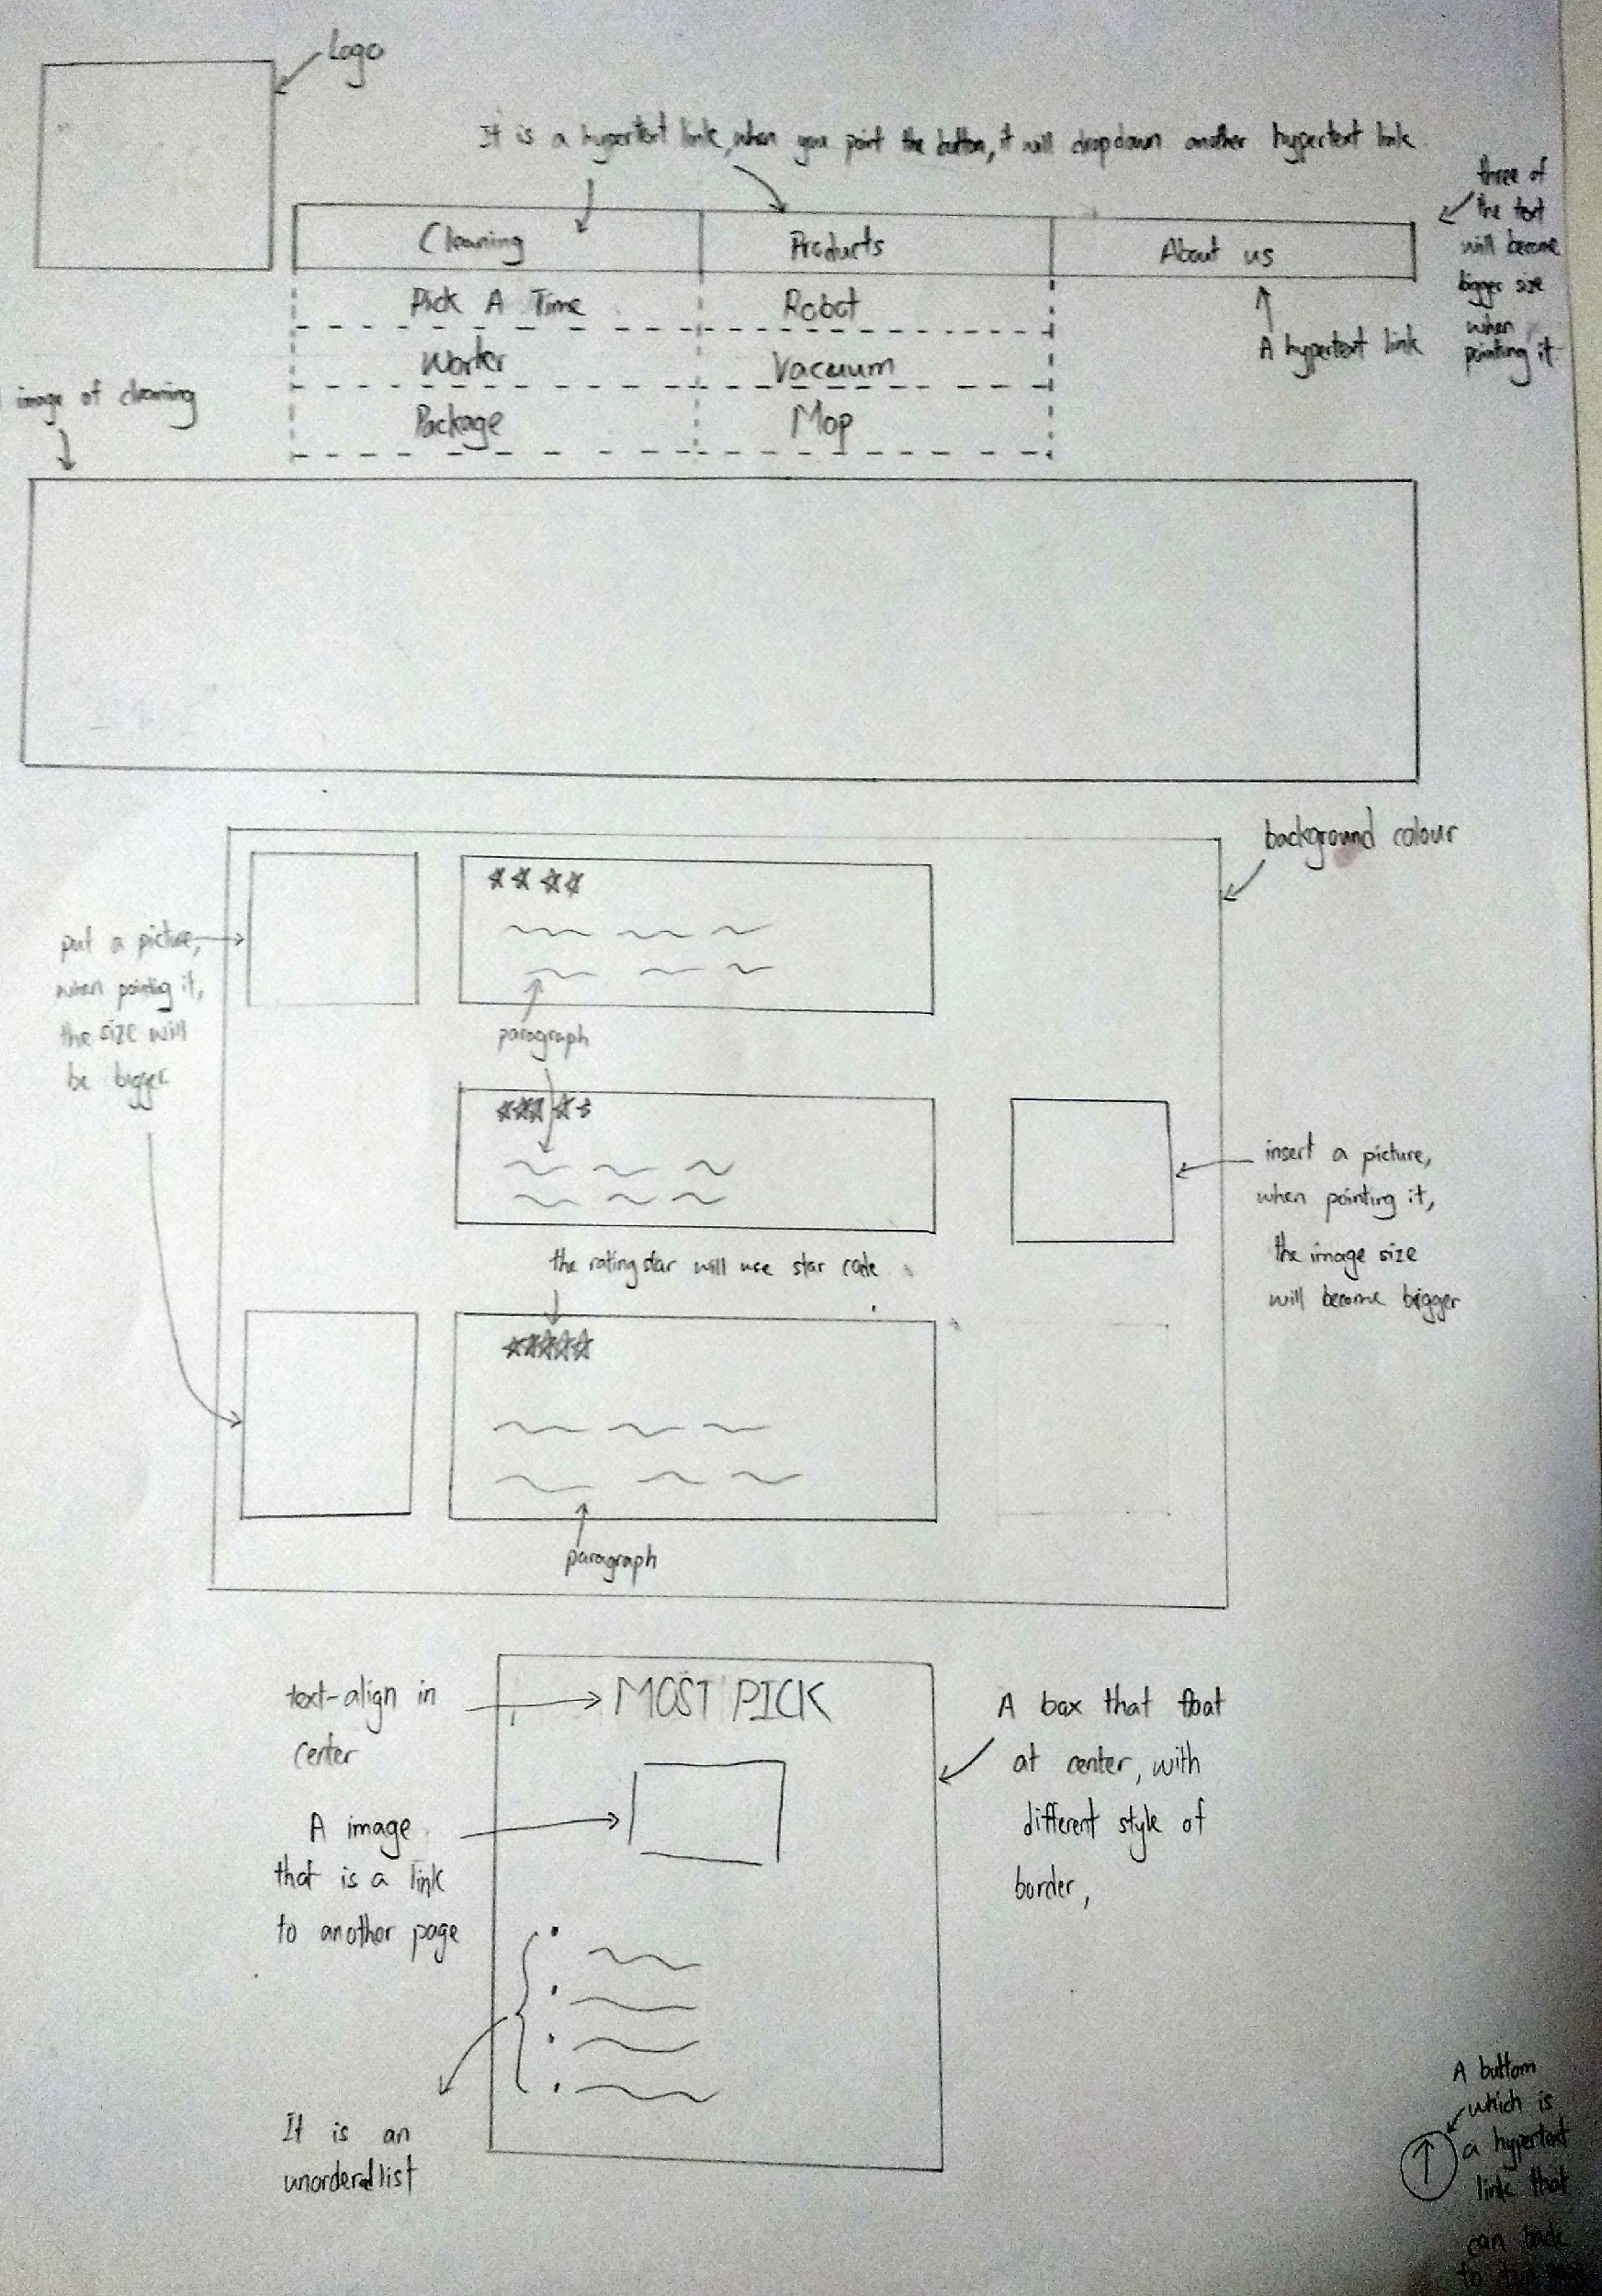 Logo
It is a hypertext link, when you point the button, it will dropdown another hypertext link
three of
the text
will become
bigger size
when
pointing it
Cleaning Products About us
Pick A Time Robot
Worker Vacuum
Package Mop
A hypertext link
image of cleaning
background colour
put a picture,
when pointing it,
the size will
be bigger
paragraph
insert a picture,
when pointing it,
the image size
will become bigger
the rating star will use star code
paragraph
text-align in
center
MOST PICK
A box that float
at center, with
different style of
border,
A image
that is a link
to another page
It is an
unordered list
A buttom
which is
a hypertext
link that
can back
to